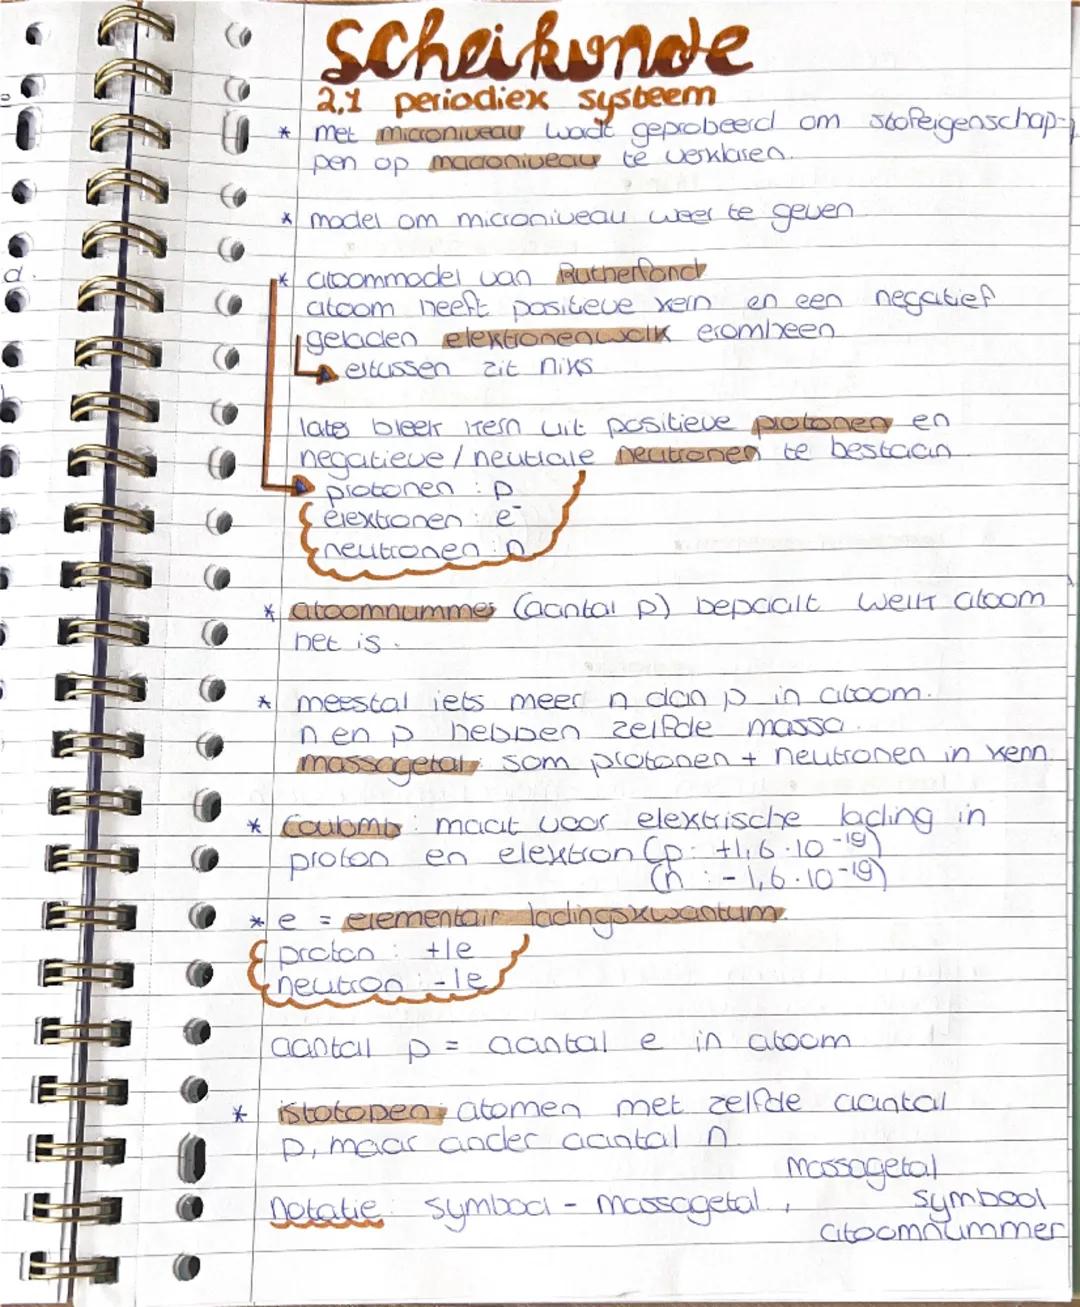 Scheikunde
2.1 periodiek systeem
* met microniveau wordt geprobeerd om stofeigenschap-
pen op macroniveau te verklaren.
* model om microniveau weer te geven
d.
* atoommodel van Rutherford
atoom heeft positieve kern en een negatief
geladen elektronenwolk eromheen
ertussen zit niks
later bleek kern uit positieve protonen en
negatieve / neutrale neutronen te bestaan
protonen : p
elektronen : e⁻
neutronen : n
* atoomnummer (aantal p) bepaalt welk atoom
het is.
* meestal iets meer n dan p in atoom.
n en p hebben zelfde massa.
massagetal: som protonen + neutronen in kern
* Coulomb: maat voor elektrische lading in
proton en elektron (p: +1,6·10⁻¹⁹)
(n : -1,6·10⁻¹⁹)
* e = elementair ladingskwantum.
proton : +1e
neutron : -1e
aantal p = aantal e in atoom
* istotopen: atomen met zelfde aantal
p, maar ander aantal n.
massagetal
Notatie: symbool - massagetal , symbool
atoomnummer